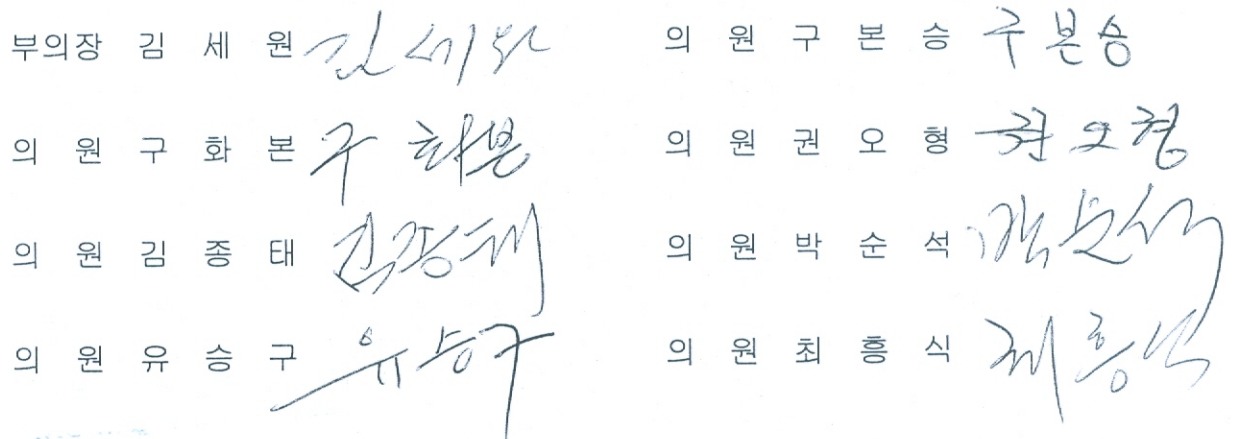 부의장 김 세 원 김세원
의 원 구 화 본 구 화본
의 원 김 종 태 김종태
의 원 유 승 구 유승구
의 원 구 본 승 구 본승
의 원 권 오 형 권오형
의 원 박 순 석 박순석
의 원 최 흥 식 최흥식